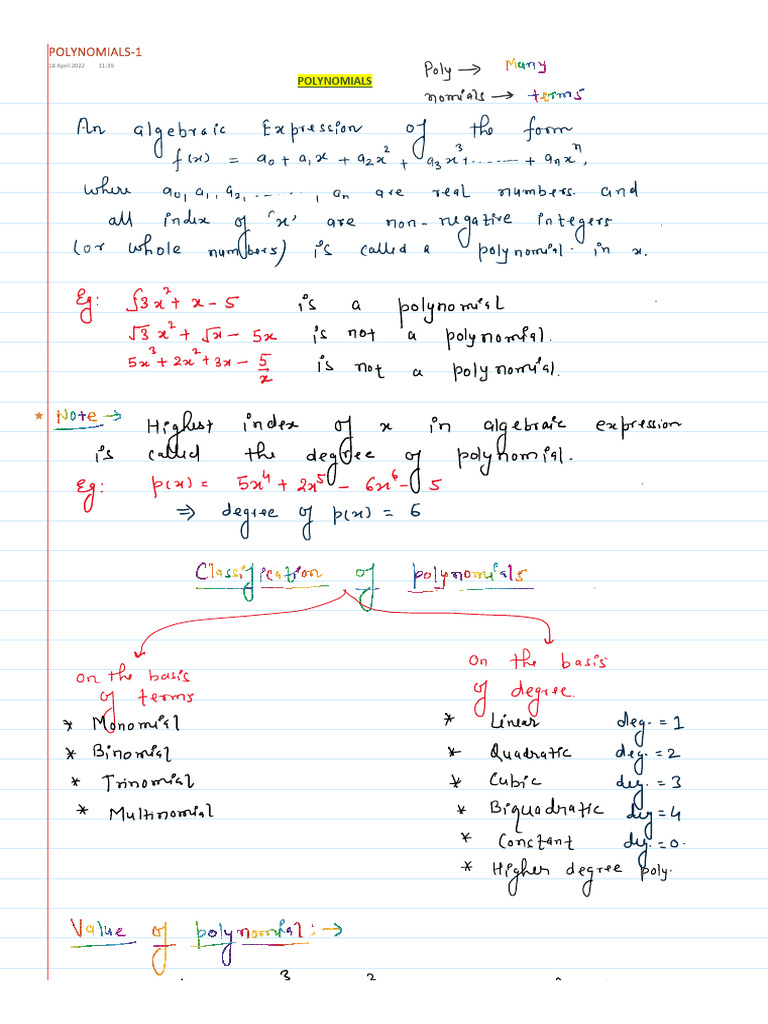 POLYNOMIALS-1
18 April 2022 11:39
POLYNOMIALS
Poly → Many
nomials → terms
An algebraic Expression of the form
f(x) = a₀ + a₁x + a₂x² + a₃x³+.......+ aₙxⁿ,
where a₀, a₁, a₂, ......., aₙ are real numbers. and
all index of 'x' are non-negative integers
(or whole numbers) is called a polynomial in x.
Eg: √3x² + x - 5 is a polynomial
√3 x² + √x - 5x is not a polynomial.
5x³ + 2x² + 3x - 5/x is not a polynomial.
* Note → Highest index of x in algebraic expression
is called the degree of polynomial.
Eg: p(x) = 5x⁴ + 2x⁵ - 6x⁶ - 5
⇒ degree of p(x) = 6
Classification of polynomials
On the basis
of terms
* Monomial
* Binomial
* Trinomial
* Multinomial
On the basis
of degree.
* Linear deg. = 1
* Quadratic deg. = 2
* Cubic deg. = 3
* Biquadratic deg = 4
* Constant deg. = 0.
* Higher degree poly.
Value of polynomial: →